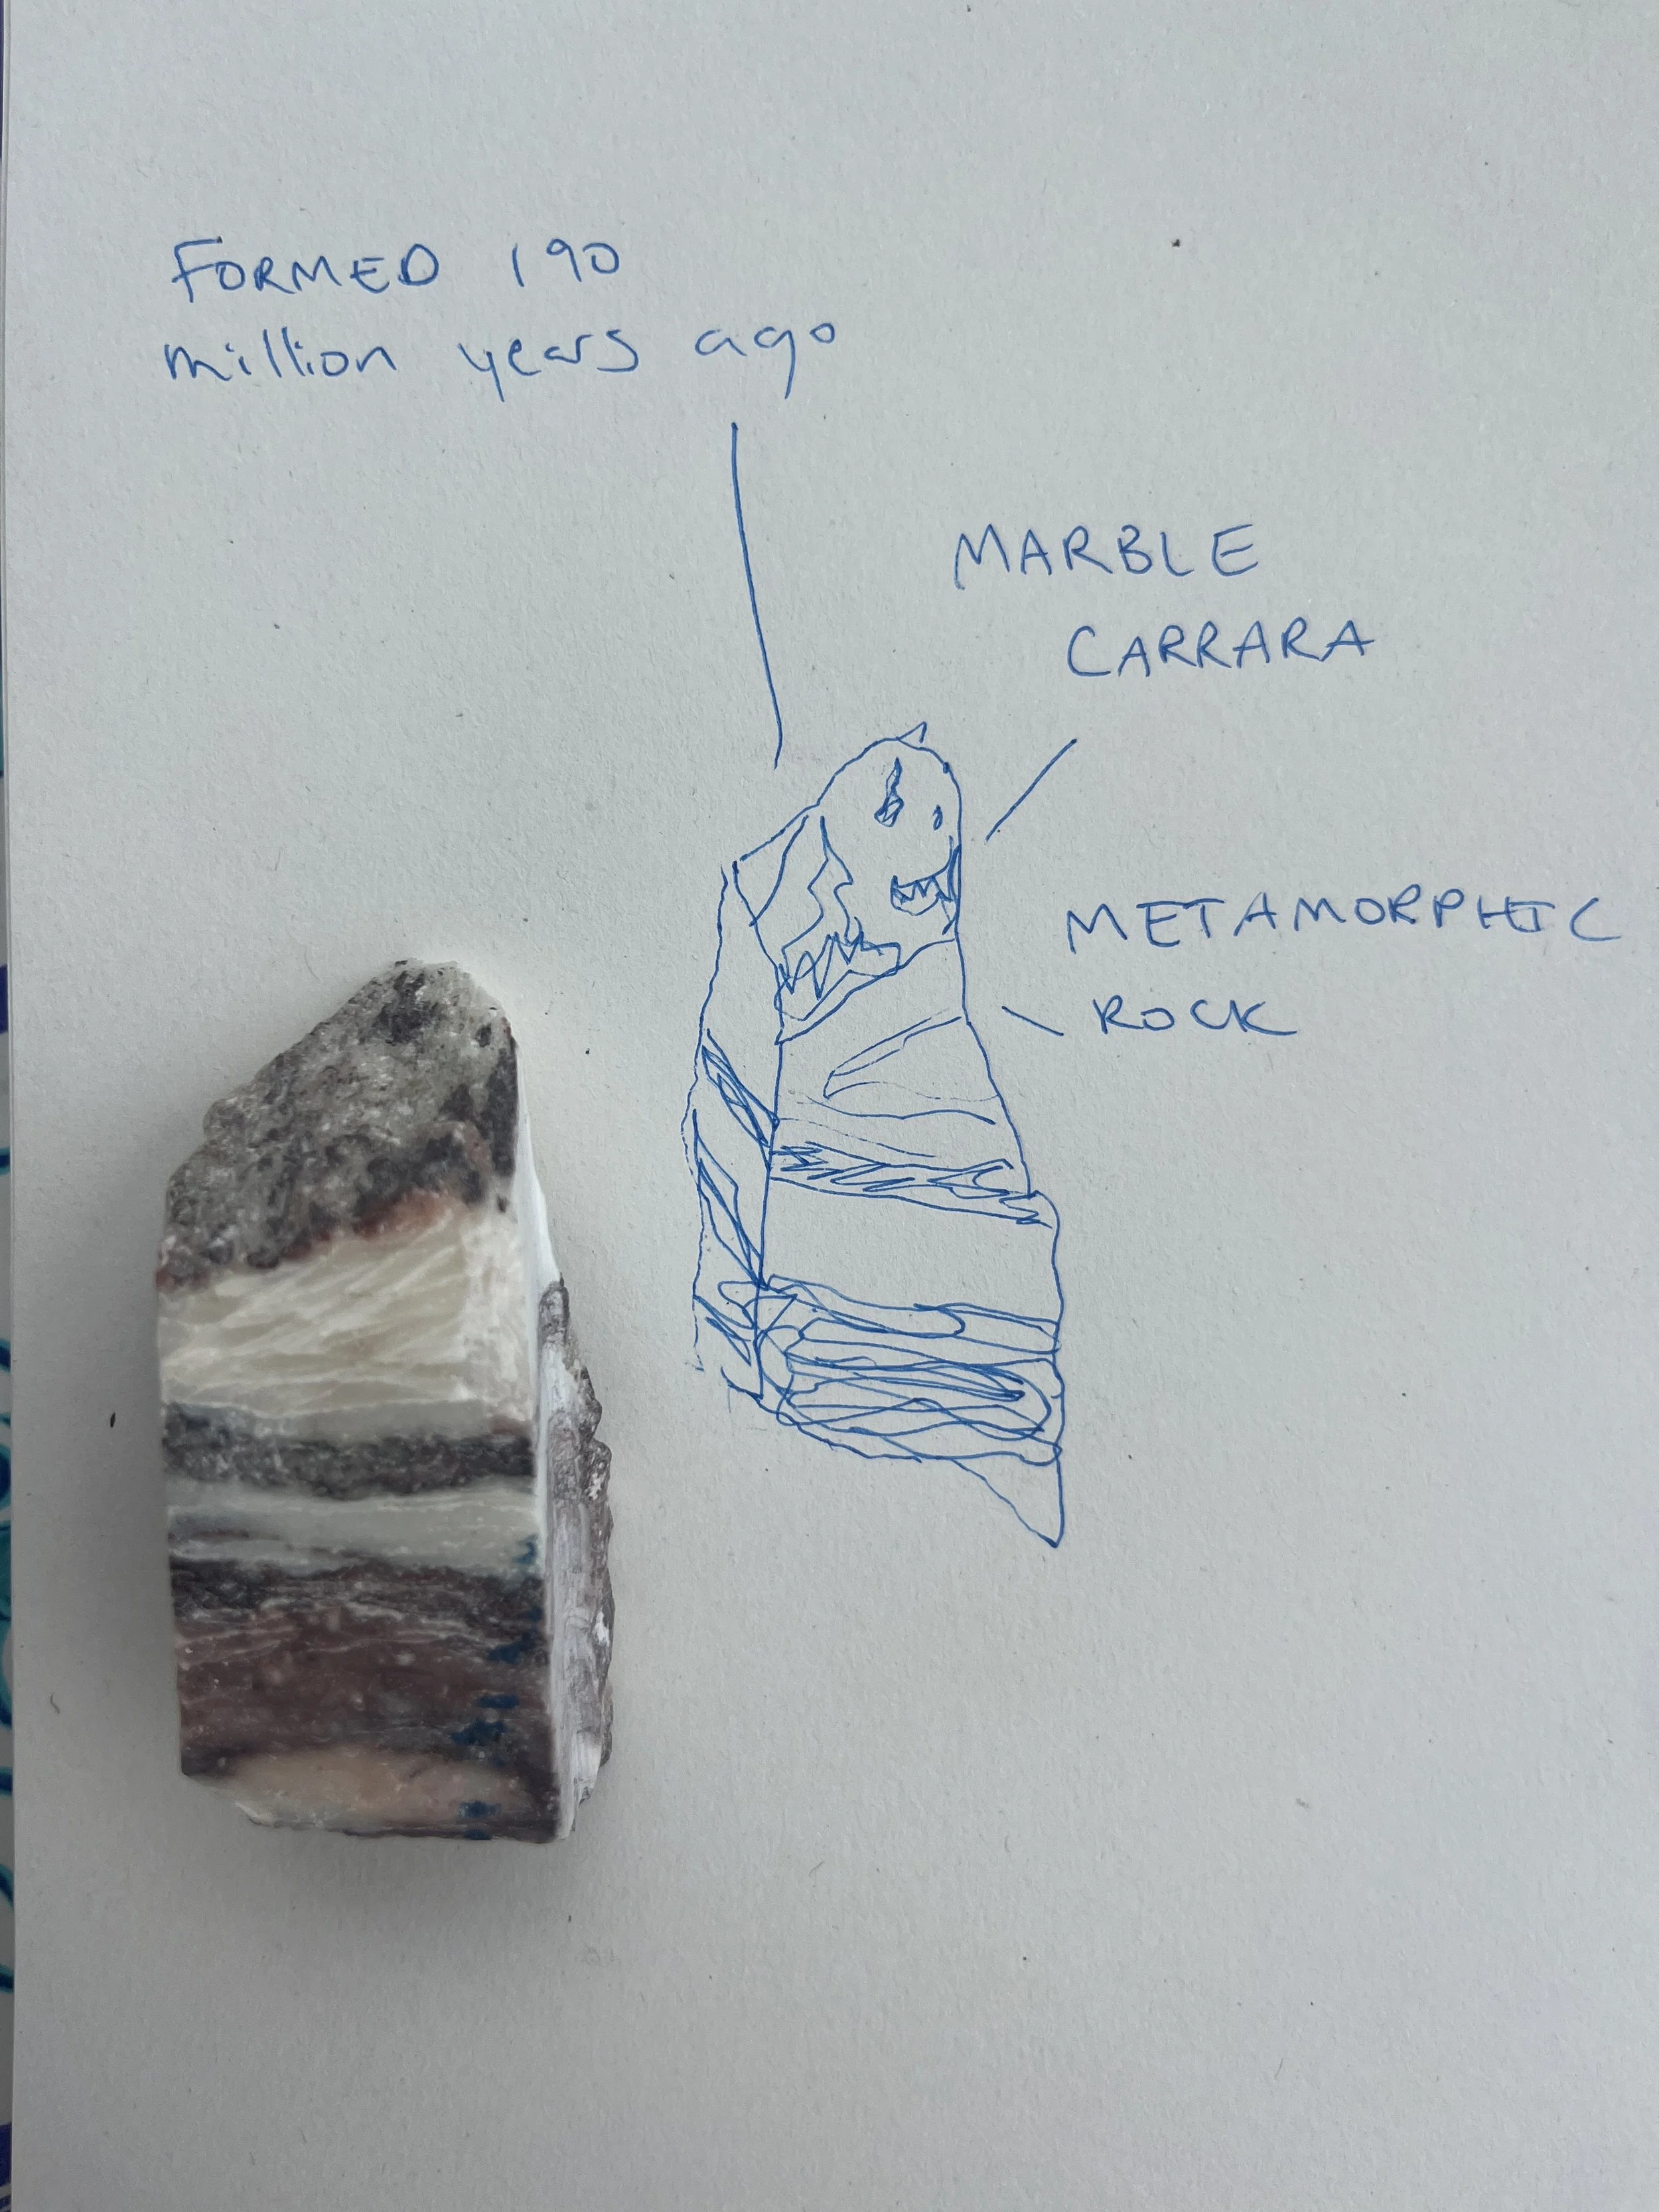 FORMED 190
million years ago
MARBLE
CARRARA
METAMORPHIC
ROCK